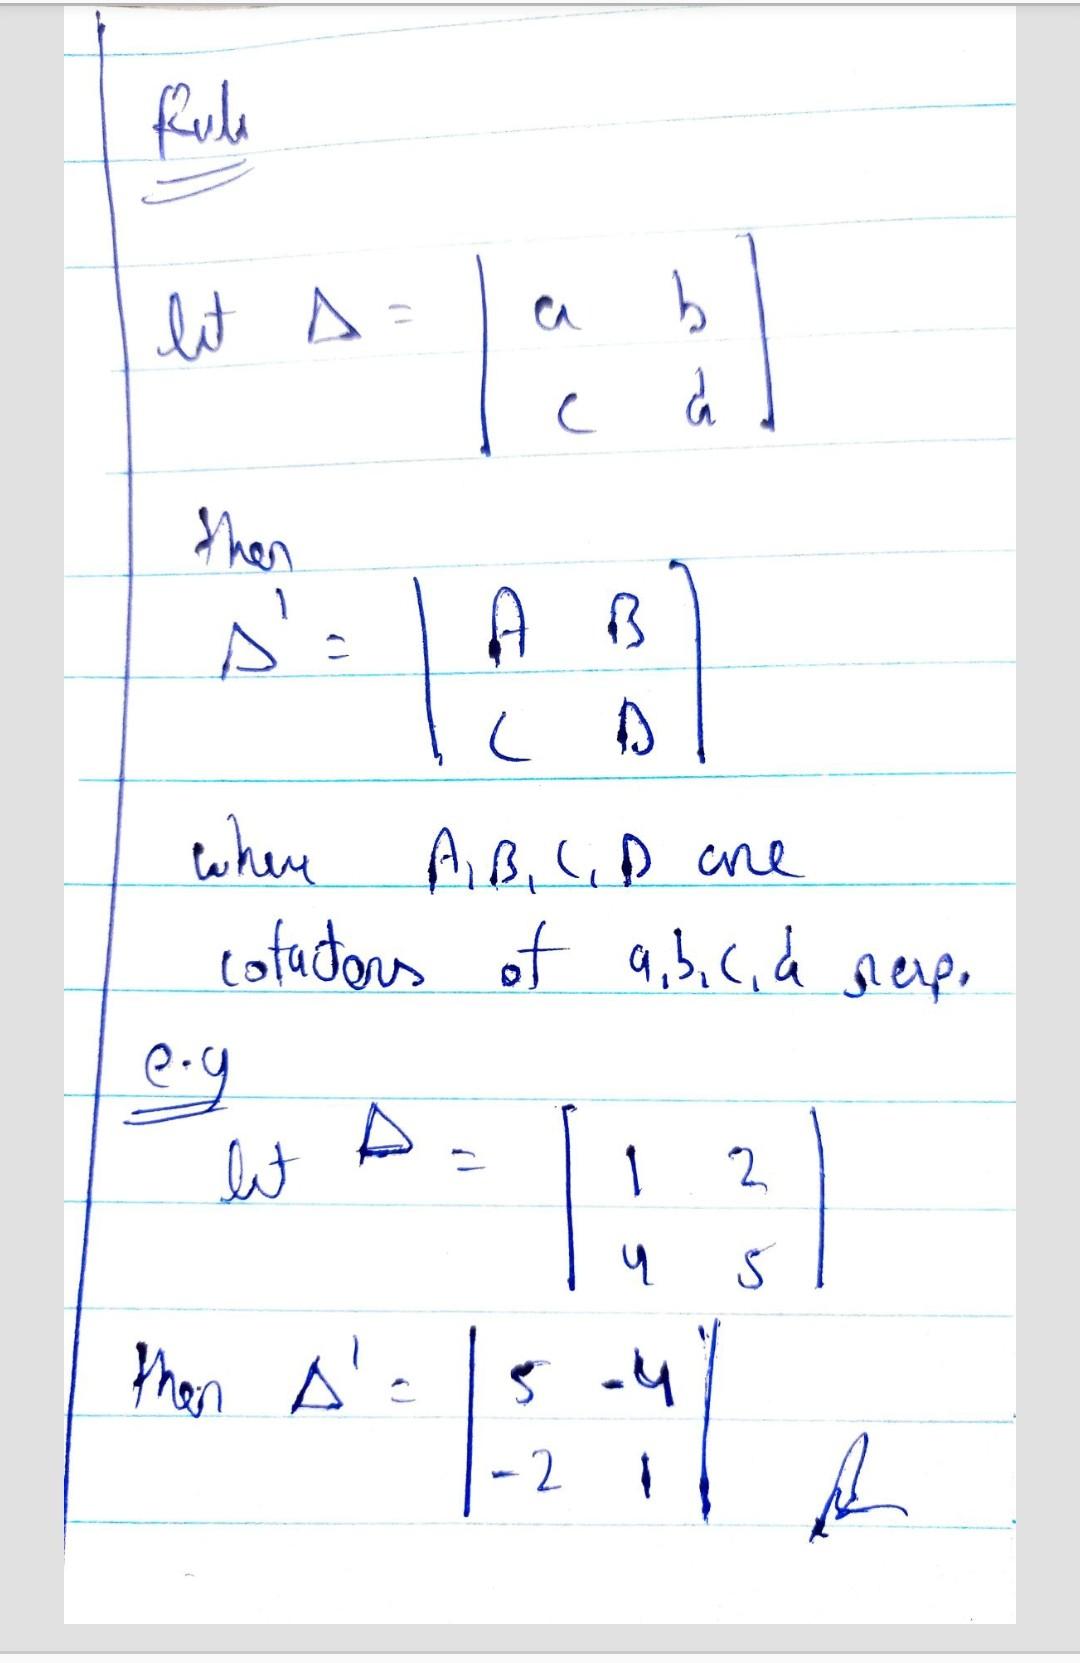 Rule
let Δ = | a b |
| c d |
then
Δ' = | A B |
| C D |
where A, B, C, D are
cofactors of a, b, c, d resp.
e.g
let Δ = | 1 2 |
| 4 5 |
then Δ' = | 5 -4 |
| -2 1 |